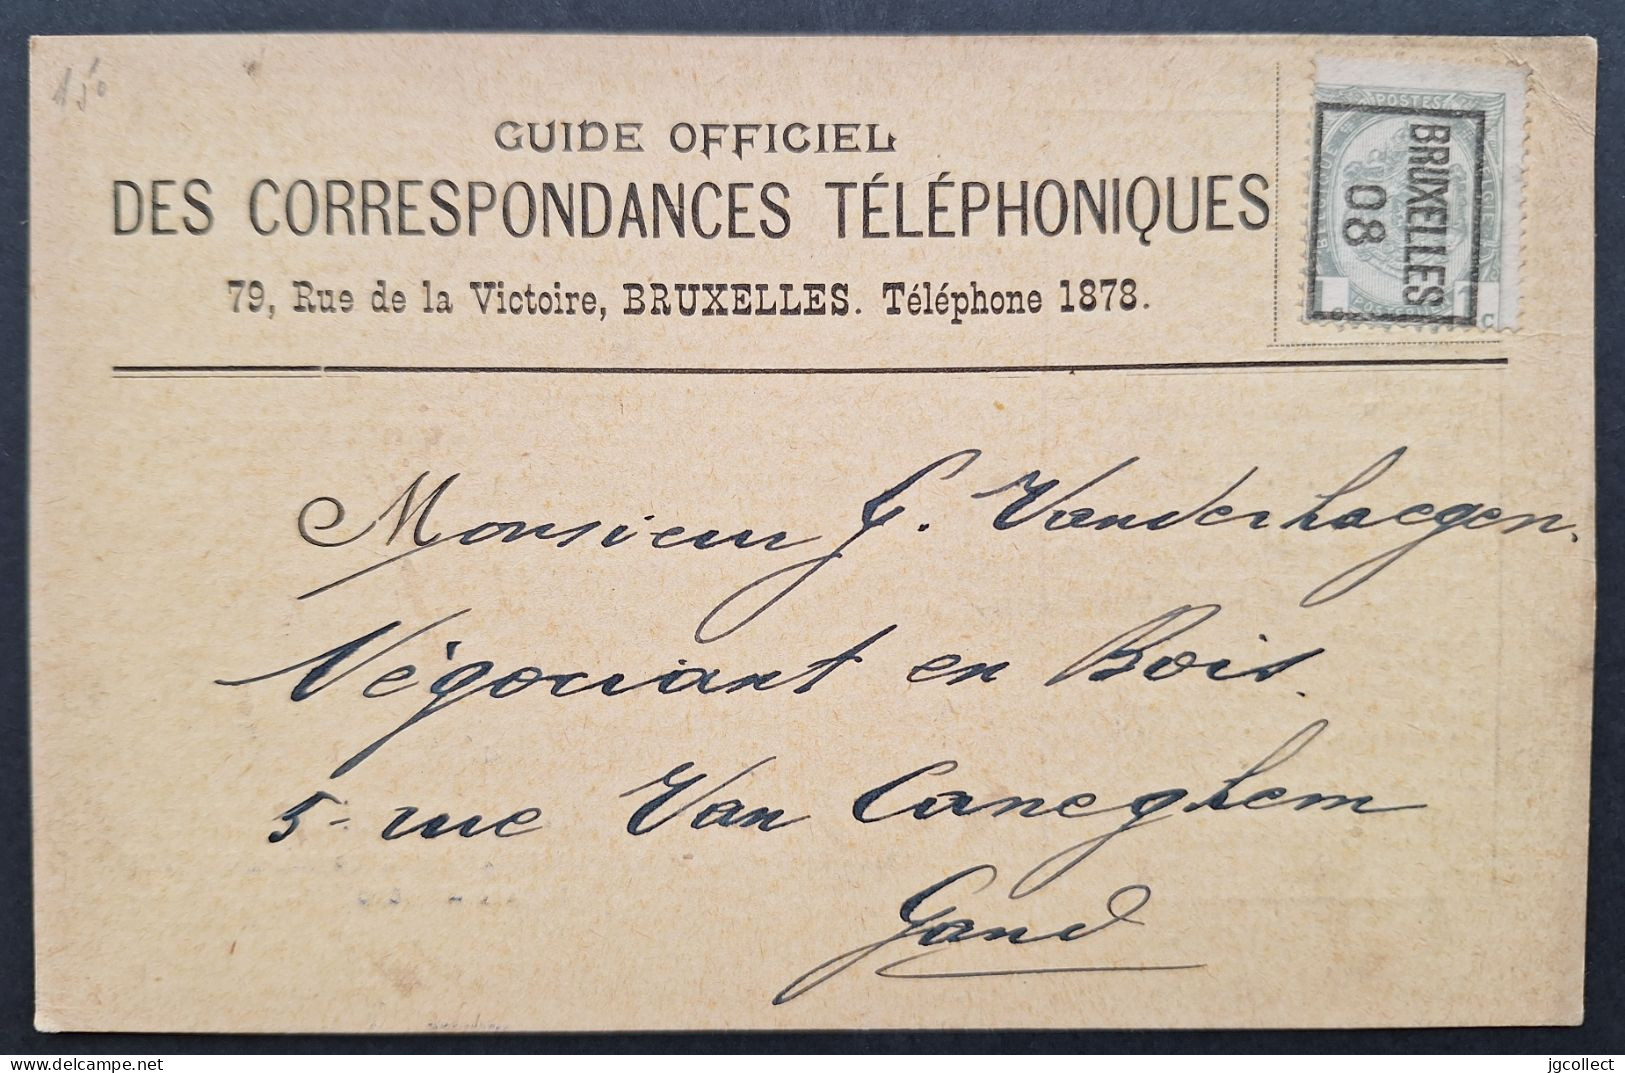 GUIDE OFFICIEL
DES CORRESPONDANCES TÉLÉPHONIQUES
79, Rue de la Victoire, BRUXELLES. Téléphone 1878.
POSTES
BRUXELLES
08
1 C
Monsieur G. Vanderhaegen.
Négociant en Bois.
5- rue Van Caneghem
Gand
delcampe.net
jgcollect